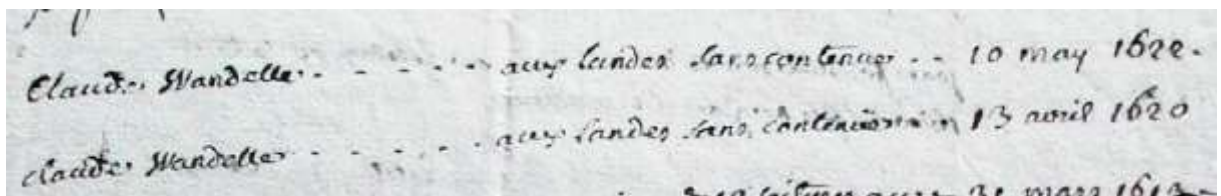 Claude Wandelle - - - - - aux landes sans contenue - - 10 may 1622.
Claude Wandelle - - - - - aux landes sans contenue 13 avril 1620
31 mars 1613